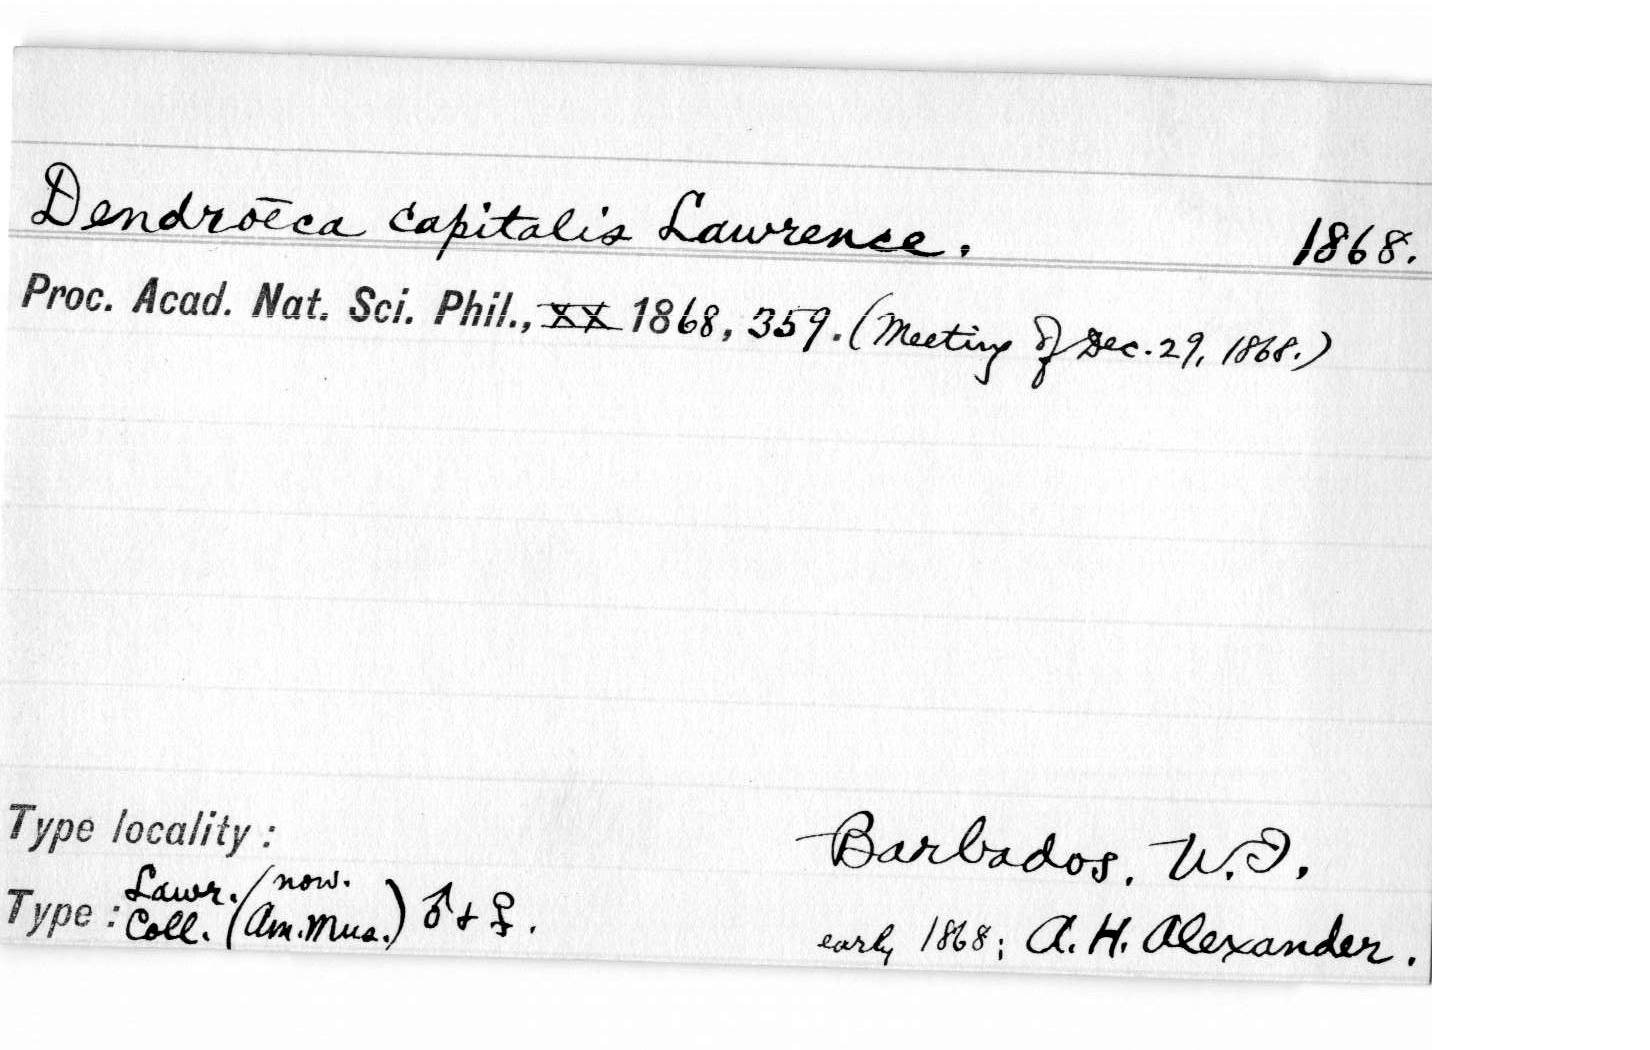 Dendroeca capitalis Lawrence. 1868.
Proc. Acad. Nat. Sci. Phil., XX 1868, 359. (Meeting of Dec. 29, 1868.)
Type locality: Barbados, W.I.
Type: Lawr. Coll. (now. Am. Mus.) ♂ + ♀. early 1868; A. H. Alexander.